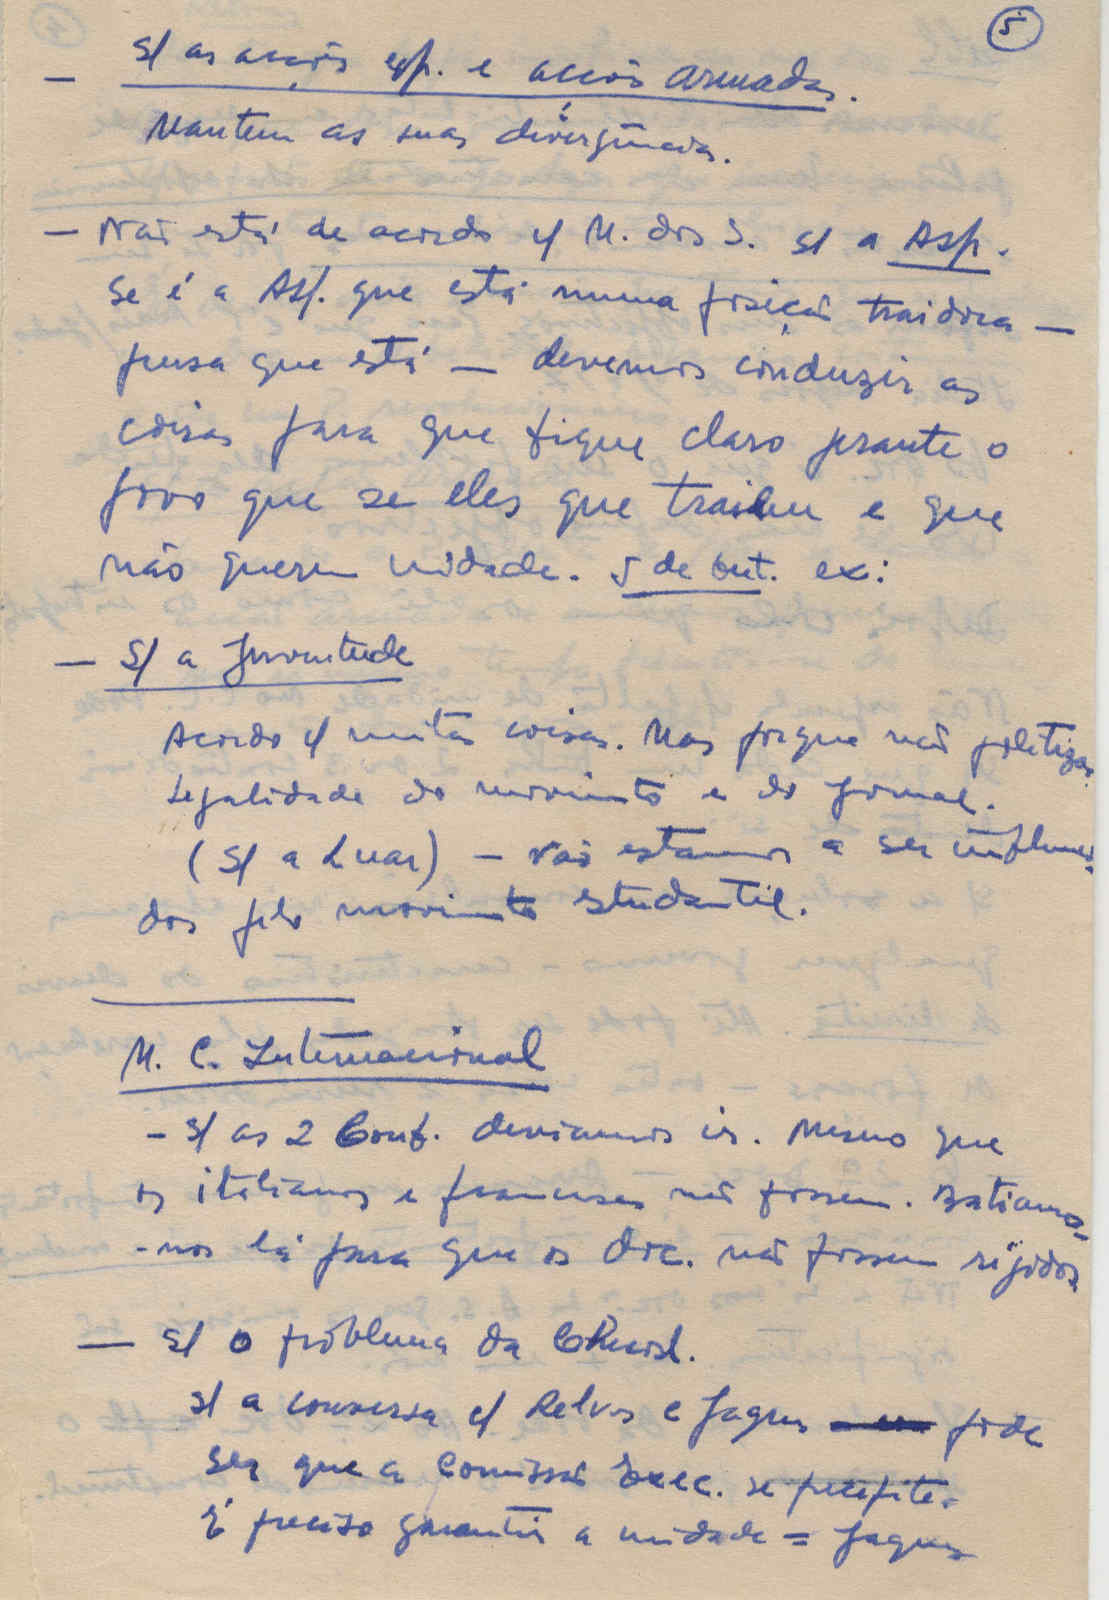 5
— S/ as acções esp. e acções armadas.
Mantem as suas divergências.
— Não está de acordo c/ M. dos S. s/ a Asp.
Se é a Asp. que está numa posição traidora —
pensa que está — devemos conduzir as
coisas para que fique claro perante o
povo que se eles que traiem e que
não querem unidade. 5 de Out. ex:
— S/ a Juventude
Acordo c/ muitas coisas. Mas porque não politizar
Legalidade do movimento e do jornal.
(S/ a Luar) — Nós estamos a ser influencia-
dos pelo movimento estudantil.
M. C. Internacional
- S/ as 2 Conf. deviamos ir. Mesmo que
os italianos e franceses não fossem. Batiamo-
-nos lá para que os doc. não fossem rígidos
— S/ o problema da
S/ a conversa c/ Relvas e Jaques pode
ser que a Comissão Exec. se precipite.
É preciso garantir a unidade = Jaques